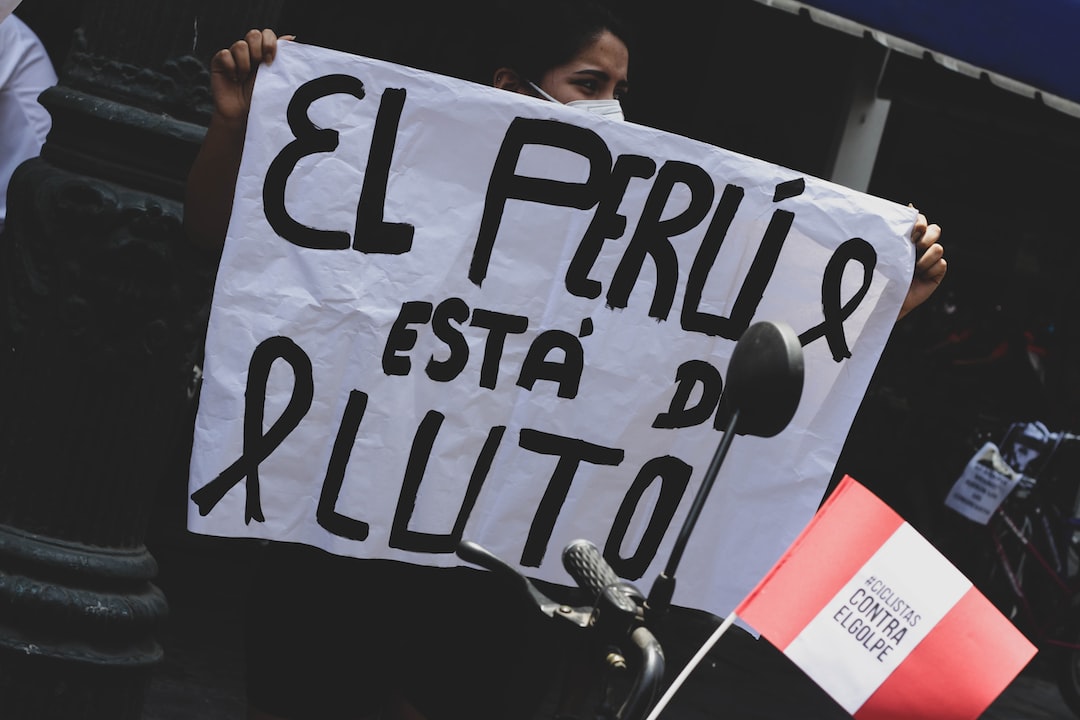 EL PERÚ
ESTÁ
LUTO
#CICLISTAS
CONTRA
ELGOLPE